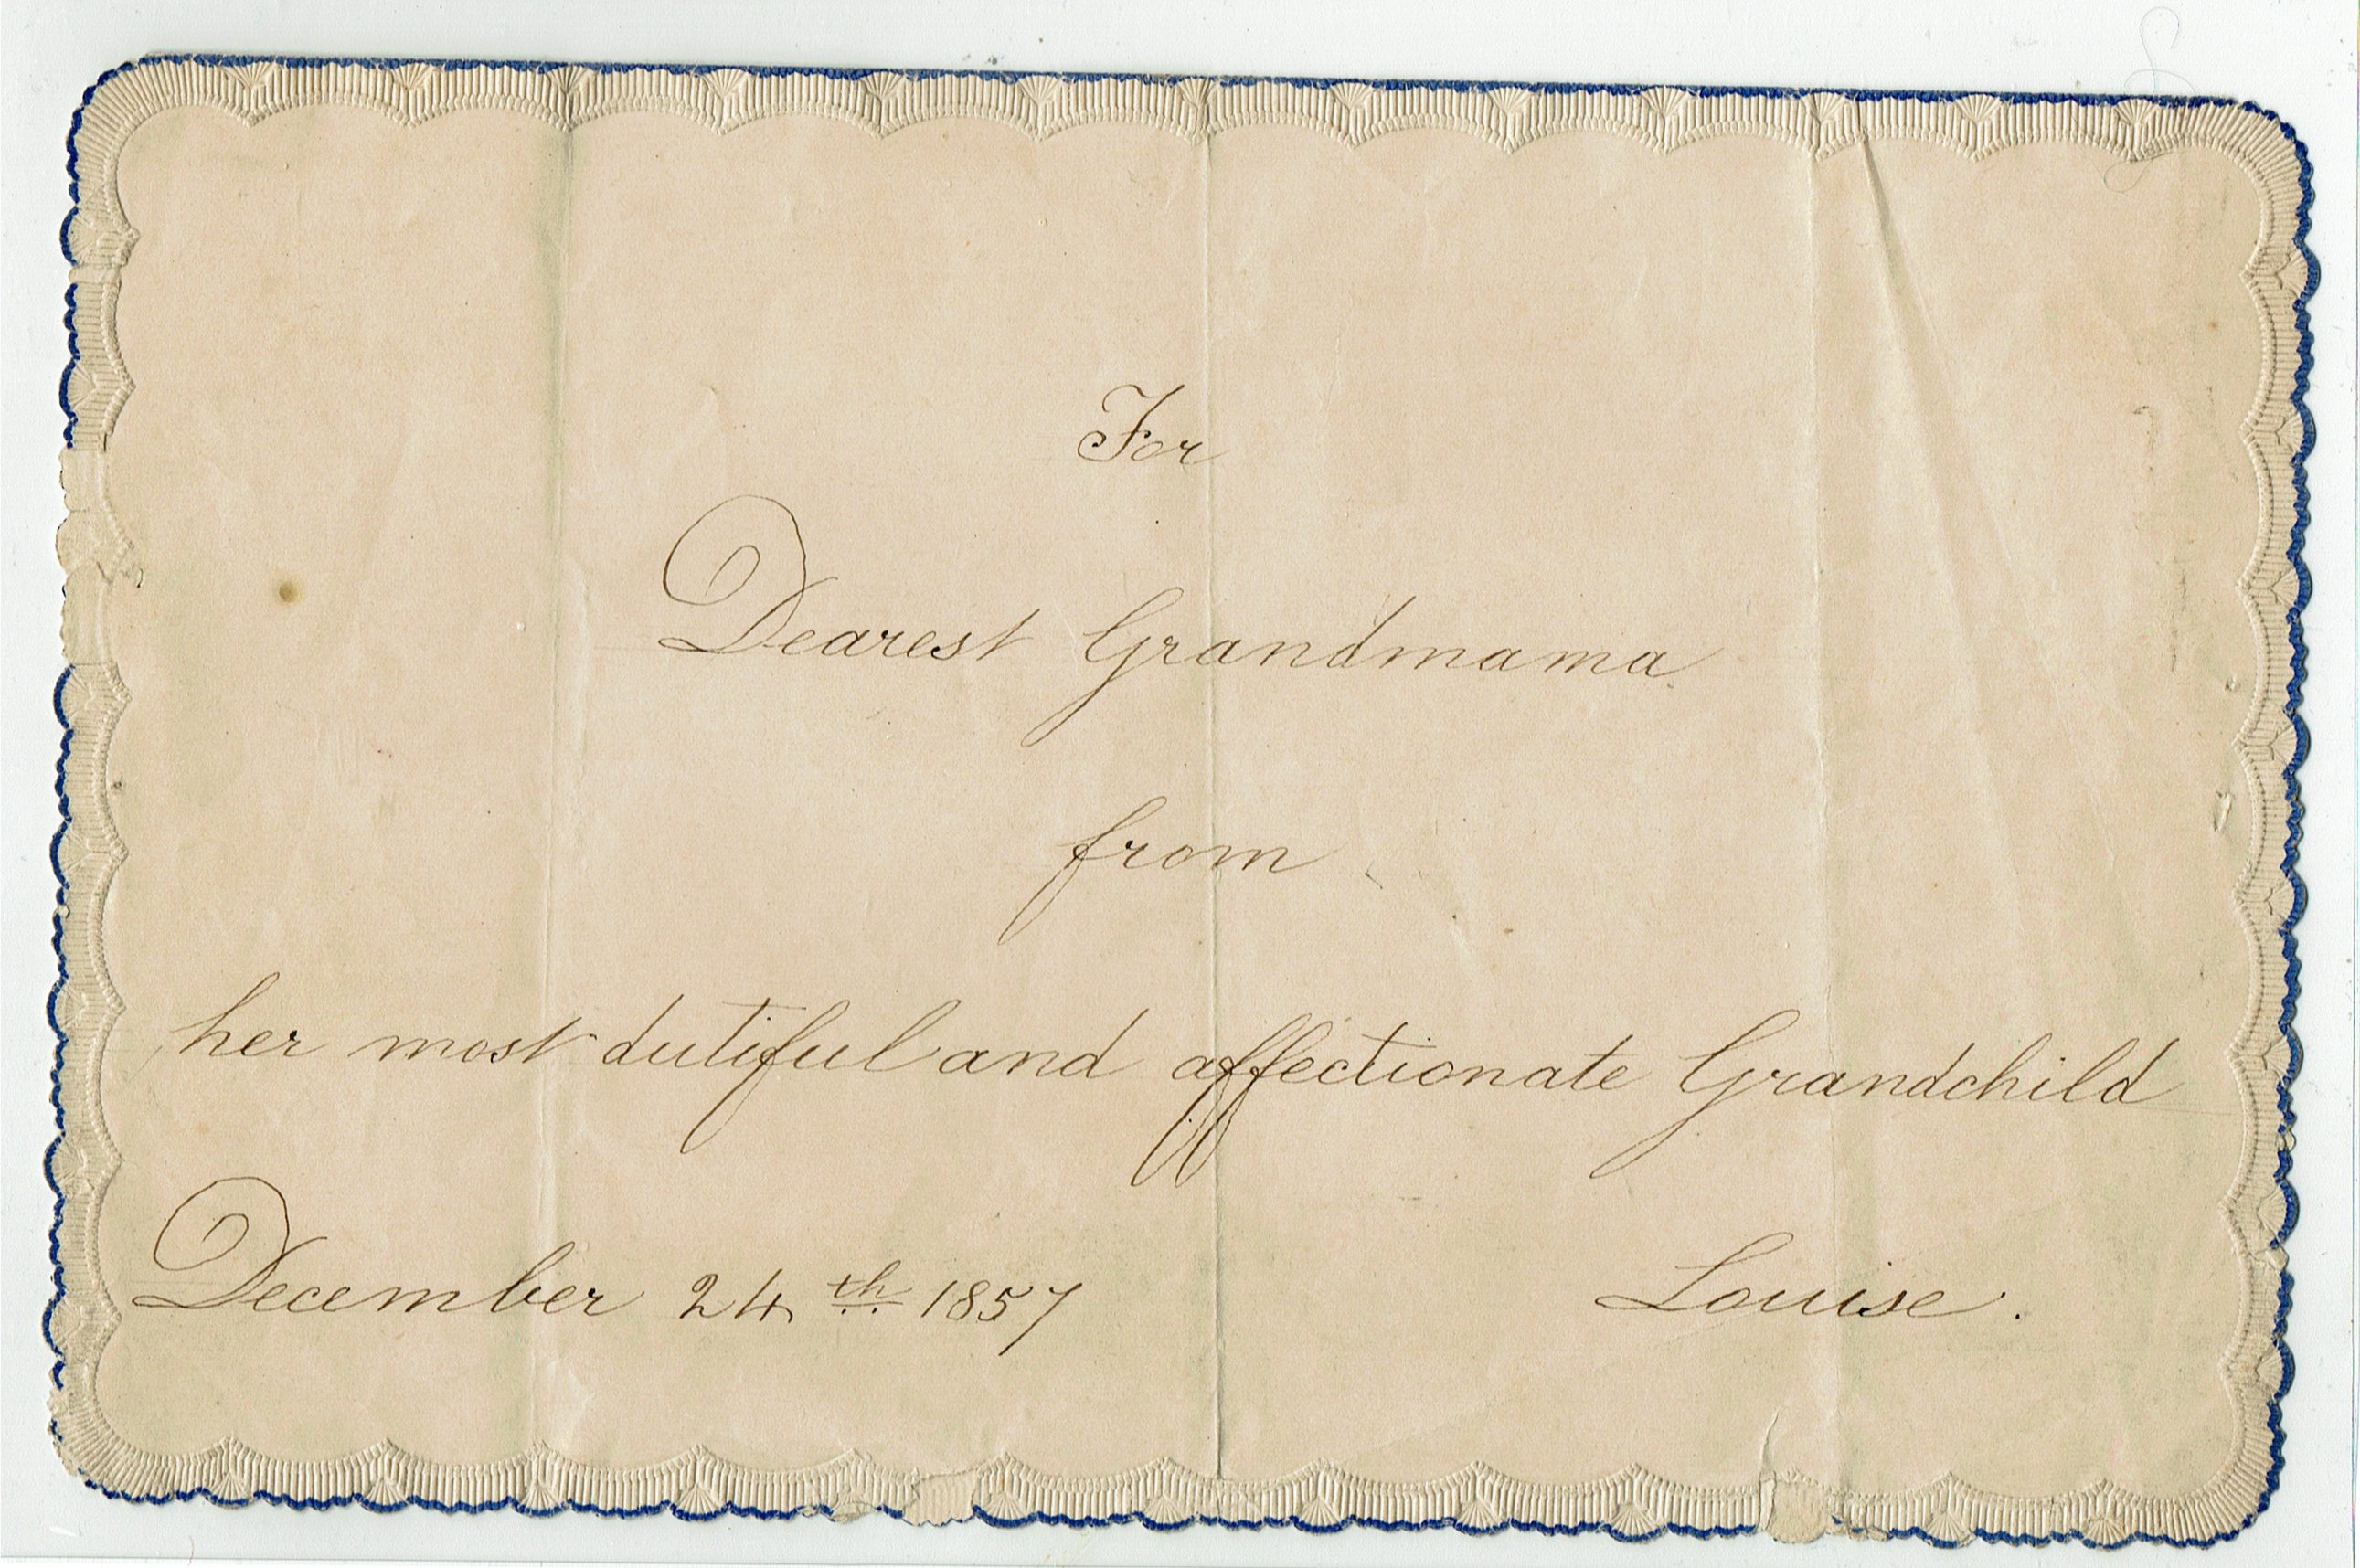 For
Dearest Grandmama
from
her most dutiful and affectionate Grandchild
December 24th 1857 Louise.